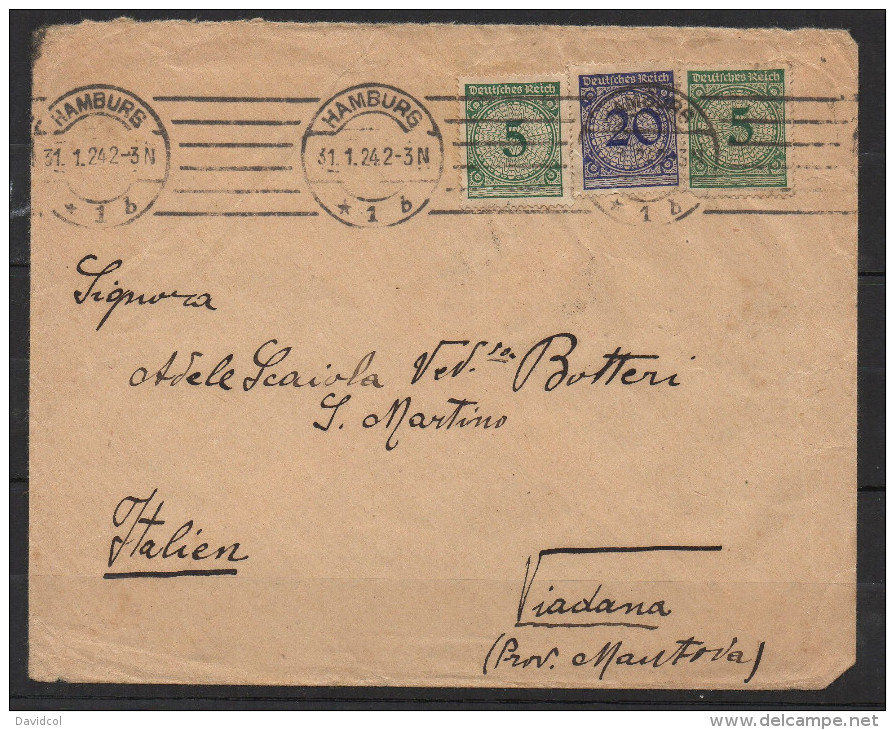 HAMBURG
31.1.24 2-3 N
* 1 b
HAMBURG
31.1.24 2-3 N
* 1 b
Deutsches Reich
5
Deutsches Reich
20
Deutsches Reich
5
* 1 b
Signora
Adele Scaiola Ved.va Botteri
S. Martino
Italien
Viadana
(Prov. Mantova)
Davidcol
www.delcampe.net